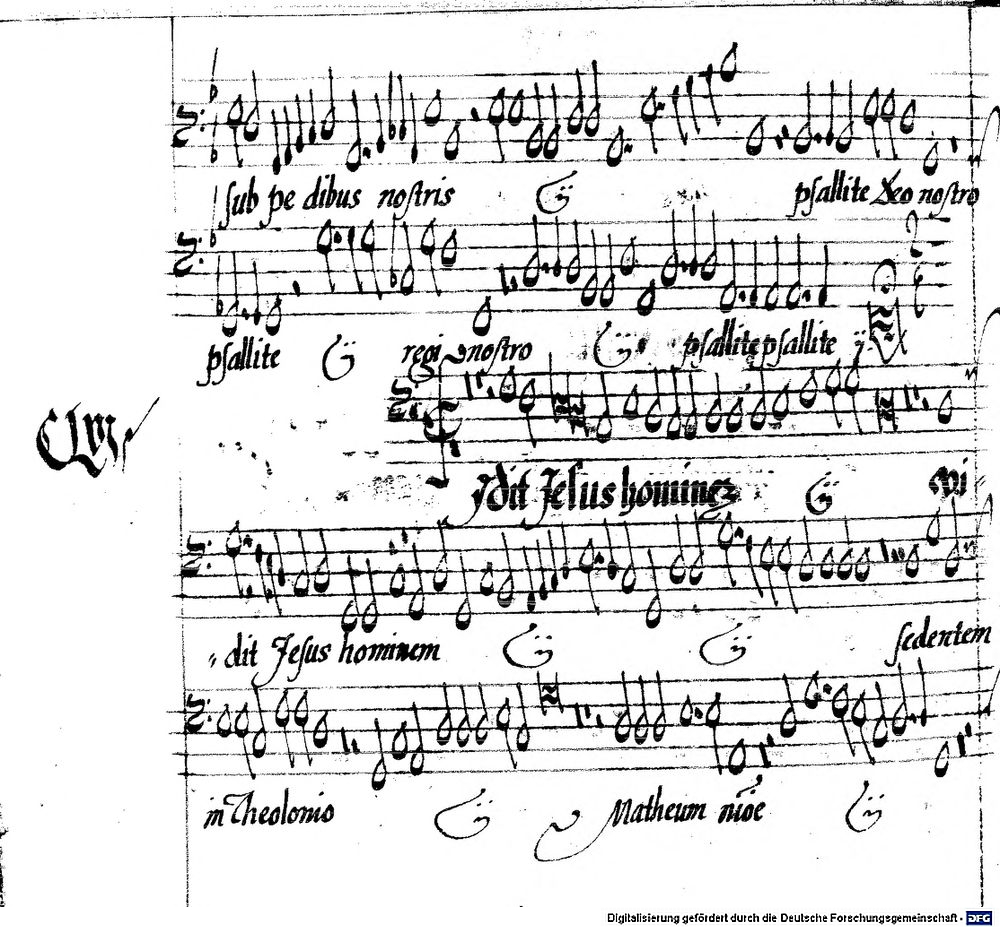 sub pe dibus nostris ij psallite Deo nostro
psallite ij regi nostro ij psallite psallite ij
CLVI
Vidit Jesus hominem ij Vi
dit Jesus hominem ij ij sedentem
in Theolonio ij Matheum nōie ij
Digitalisierung gefördert durch die Deutsche Forschungsgemeinschaft - DFG